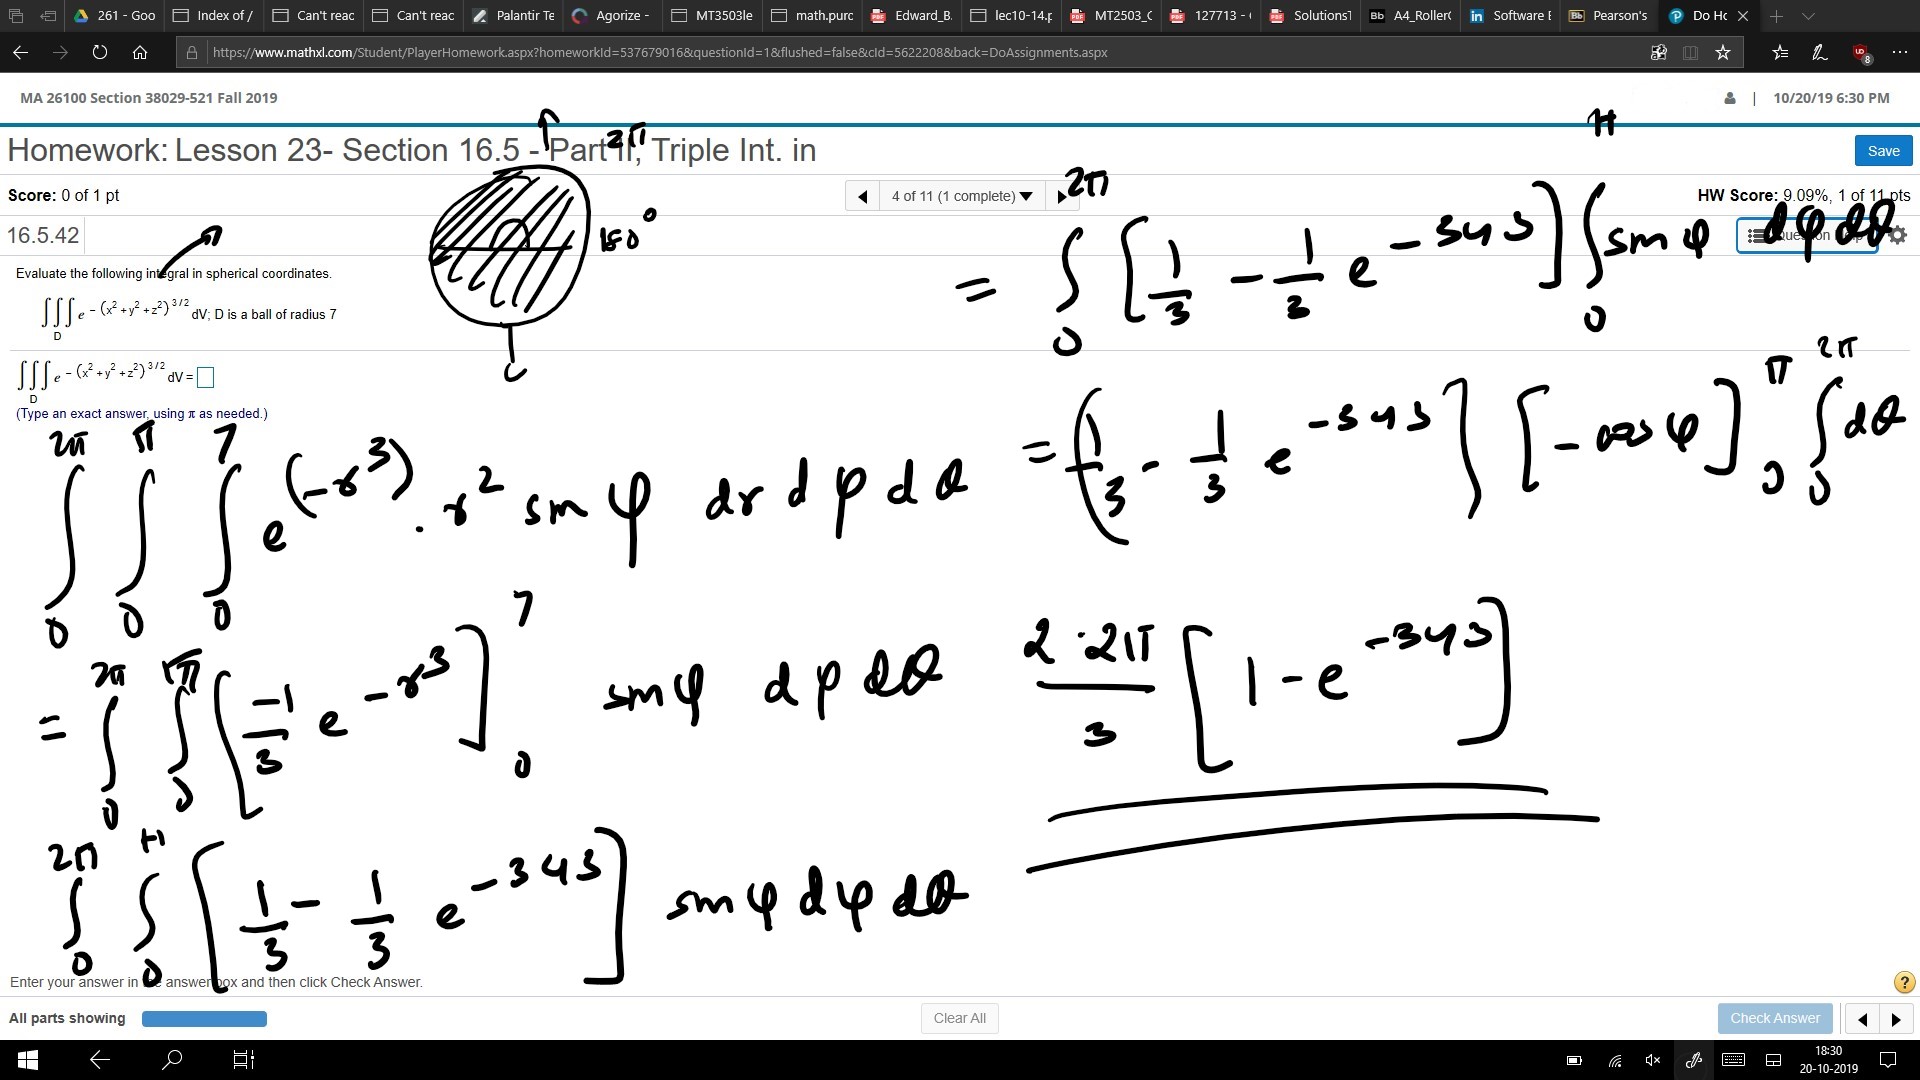 261 - Goo Index of / Can't reac Can't reac Palantir Te Agorize - MT3503le math.purc Edward_B. lec10-14.p MT2503_C 127713 - ( SolutionsT Bb A4_Roller( in Software E Bb Pearson's Do Hc
https://www.mathxl.com/Student/PlayerHomework.aspx?homeworkId=537679016&questionId=1&flushed=false&cId=5622208&back=DoAssignments.aspx
MA 26100 Section 38029-521 Fall 2019 | 10/20/19 6:30 PM
Homework: Lesson 23- Section 16.5 - Part II, Triple Int. in Save
Score: 0 of 1 pt 4 of 11 (1 complete) HW Score: 9.09%, 1 of 11 pts
16.5.42
180°
Evaluate the following integral in spherical coordinates.
∫∫∫_D e^-(x² + y² + z²)^3/2 dV; D is a ball of radius 7
∫∫∫_D e^-(x² + y² + z²)^3/2 dV =
(Type an exact answer, using π as needed.)
∫_0^2π ∫_0^π ∫_0^7 e^(-r³) · r² sin φ dr dφ dθ
= ∫_0^2π ∫_0^π [-1/3 e^-r³]_0^7 sin φ dφ dθ
∫_0^2π ∫_0^π [1/3 - 1/3 e^-343] sin φ dφ dθ
= ∫_0^2π [1/3 - 1/3 e^-343] ∫_0^π sin φ dφ dθ
= (1/3 - 1/3 e^-343] [-cos φ]_0^π ∫_0^2π dθ
2·2π/3 [1 - e^-343]
Enter your answer in the answer box and then click Check Answer.
All parts showing Clear All Check Answer
18:30
20-10-2019